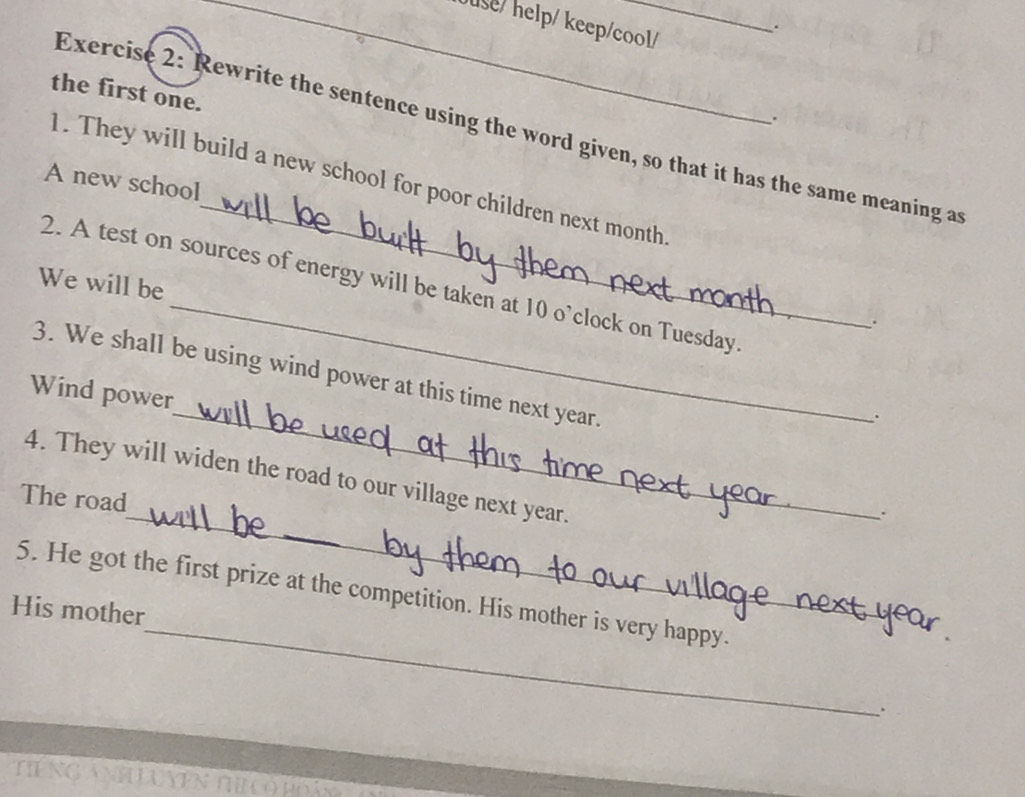 help/ keep/cool/
.
.
Exercise 2: Rewrite the sentence using the word given, so that it has the same meaning as
the first one.
1. They will build a new school for poor children next month.
A new school will be built by them next month.
2. A test on sources of energy will be taken at 10 o'clock on Tuesday.
We will be ____________.
3. We shall be using wind power at this time next year.
Wind power will be used at this time next year.
4. They will widen the road to our village next year.
The road will be __ by them to our village next year.
5. He got the first prize at the competition. His mother is very happy.
His mother ____________.